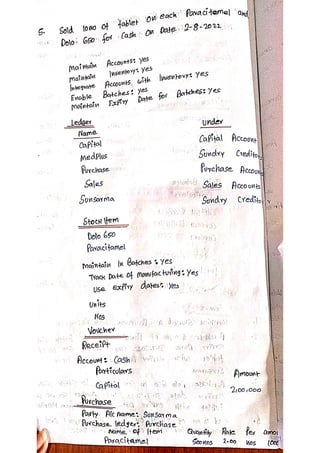 5. Sold 1000 of Tablet on each Paracitamel and
Delo: 650 for Cash on Date 2-8-2022
Maintain Accounts: yes
Maintain Inventory: yes
Integrate Accounts with Inventory: yes
Enable Batches: yes
Maintain Expiry Date for Batches: yes
Ledger Under
Name
Capital Capital Account
Medplus Sundry Credito
Purchase Purchase Accou
Sales Sales Accounts
Sunsarma Sundry Credito
Stock Item
Delo 650
Paracitamel
Maintain in Batches: Yes
Track Date of manufacturing: Yes
Use expiry dates: Yes
Units
Nos
Voucher
Receipt
Account: Cash
Particulars Amount
Capital 2,00,000
Purchase
Party A/c name: Sunsarma
Purchase ledger: Purchase
Name of Item Quantity Rate Per amo
Paracitamel 500nos 2.00 nos